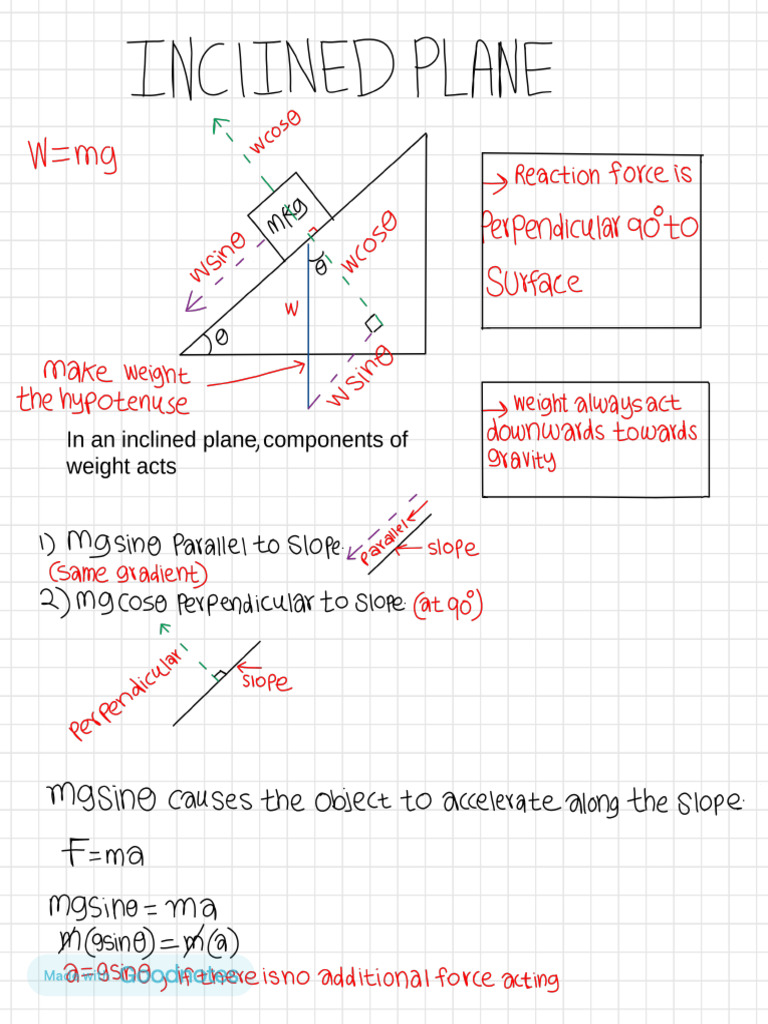 INCLINED PLANE
W=mg
wcosθ
mkg
wsinθ
wcosθ
θ
W
θ
wsinθ
make weight
the hypotenuse
→ Reaction force is
perpendicular 90° to
surface
→ weight always act
downwards towards
gravity
In an inclined plane, components of
weight acts
1) mgsinθ parallel to slope.
(same gradient)
parallel
slope
2) mgcosθ perpendicular to slope. (at 90°)
perpendicular
slope
mgsinθ causes the object to accelerate along the slope.
F=ma
mgsinθ = ma
m(gsinθ) = m(a)
a=gsinθ, if there is no additional force acting
Made with Goodnotes